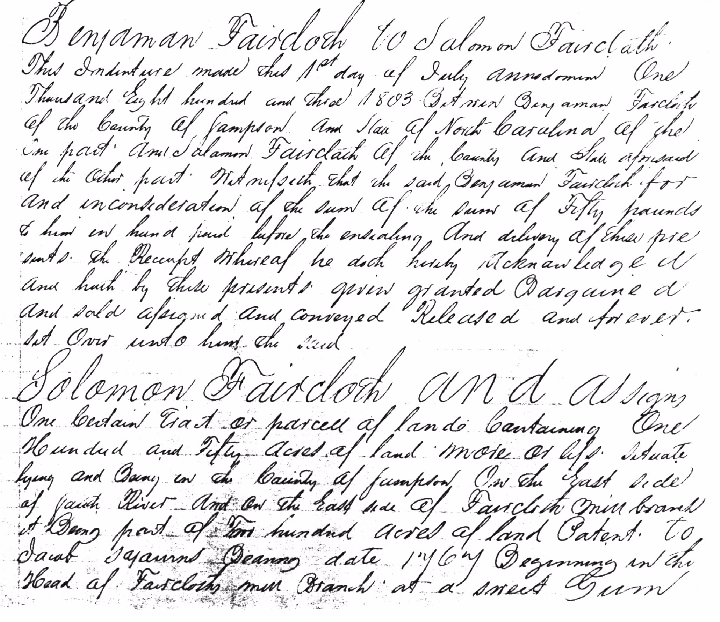 Benjaman Faircloth to Solomon Faircloth
This Indenture made this 1st day of July annodomini One
Thousand Eight hundred and three 1803 Between Benjaman Faircloth
of the County of Sampson And State of North Carolina of the
One part And Solomon Faircloth of the County And State aforesaid
of the Other part Witnesseth that the said Benjaman Faircloth for
and inconsideration of the sum of the sum of Fifty pounds
to him in hand paid before the ensealing And delivery of these pre
sents the Receipt Whereof he doth hereby Acknowledge d
and hath by these presents given granted Bargaine d
and sold assigned and conveyed Released and forever
set Over unto him the said
Solomon Faircloth and assigns
One Certain Tract or parcell of lands Containing One
Hundred and Fifty Acres of land more or less situate
lying and Being in the County of Sampson On the East side
of River And on the East side of Faircloth mill branch
it Being part of hundred acres of land Patent to
Jacob Bearing date Beginning in the
Head of Faircloths mill Branch at a sweet Gum